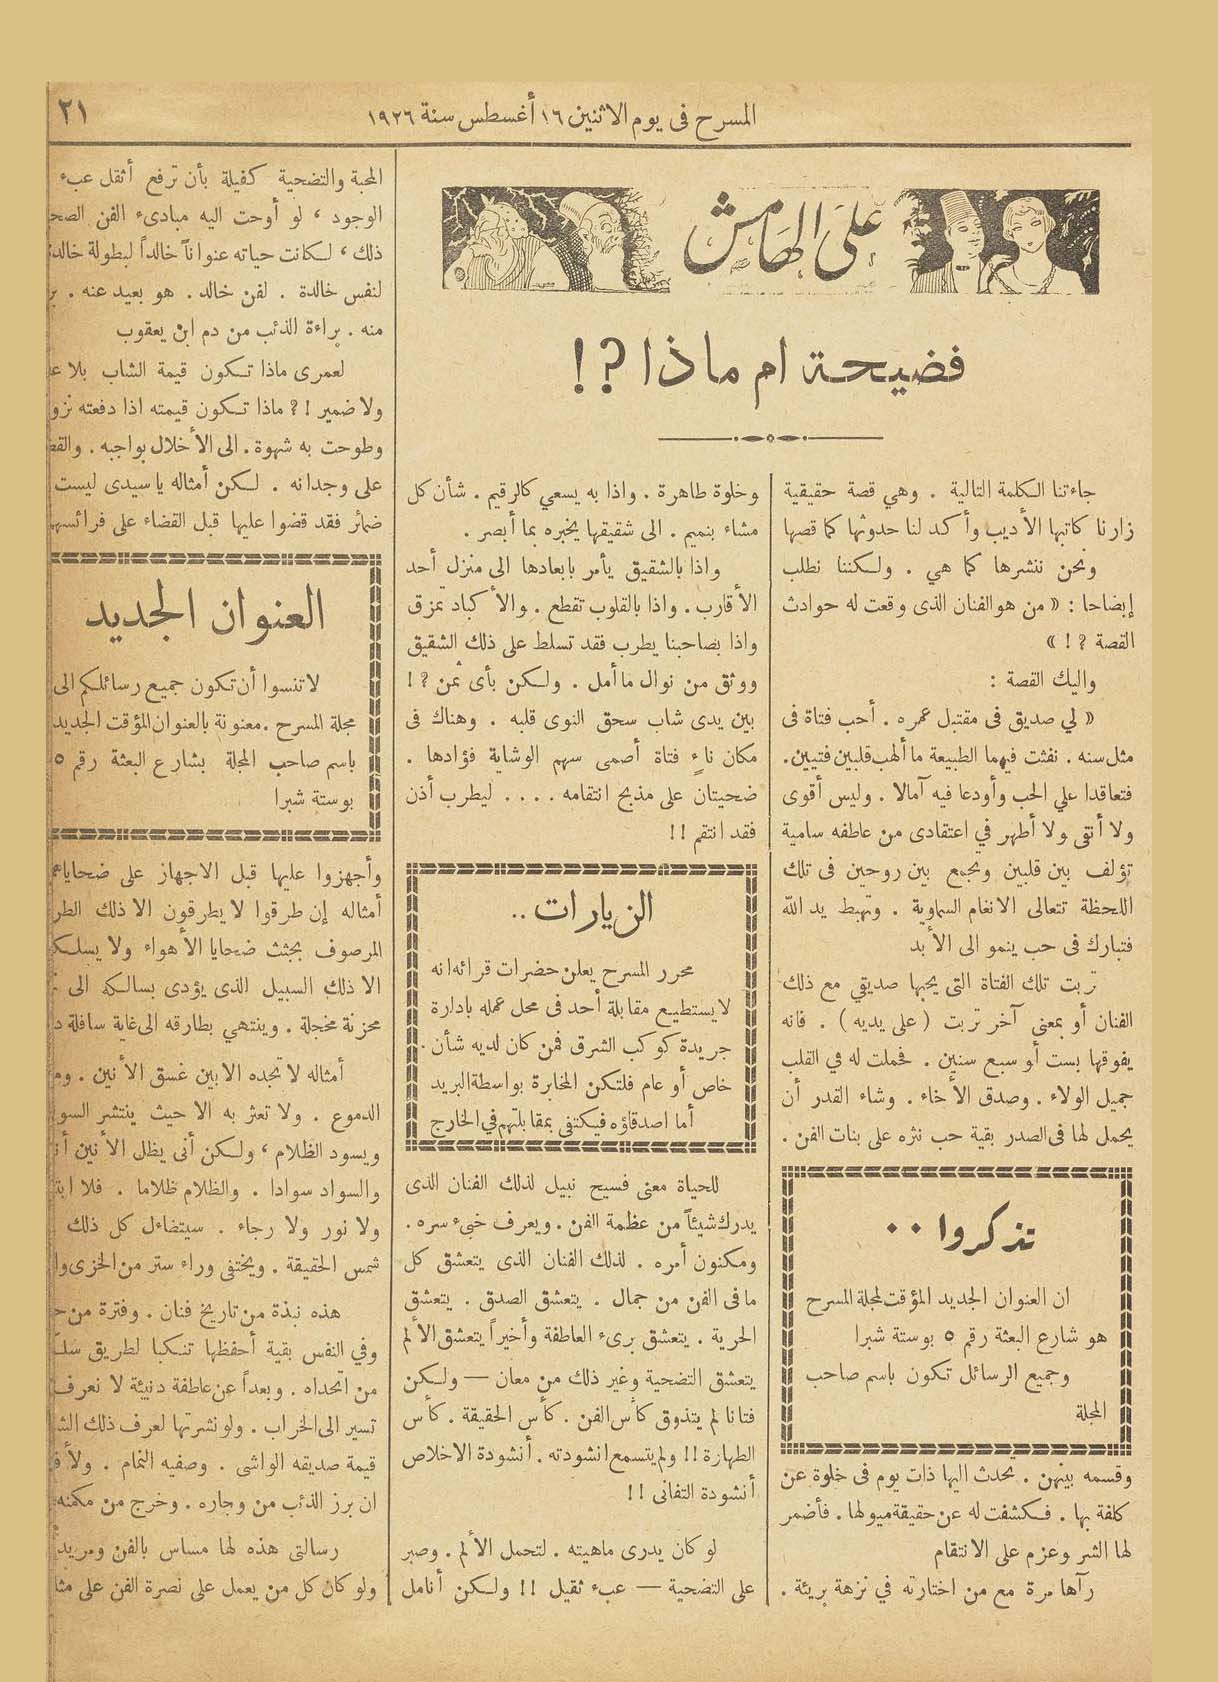 المسرح فى يوم الاثنين ١٦ أغسطس سنة ١٩٢٦
٢١
على الهامش
فضيحة ام ماذا ?!
جاءتنا الكلمة التالية . وهي قصة حقيقية
زارنا كاتبها الأديب وأكد لنا حدوثها كما قصها
ونحن ننشرها كما هي . ولكننا نطلب
إيضاحا : « من هو الفنان الذى وقعت له حوادث
القصة ?! »
واليك القصة :
« لي صديق فى مقتبل عمره . أحب فتاة فى
مثل سنه . نفثت فيهما الطبيعة ما ألهب قلبين فتيين.
فتعاقدا علي الحب وأودعا فيه آمالا . وليس أقوى
ولا أنقى ولا أطهر في اعتقادى من عاطفه سامية
تؤلف بين قلبين وتجمع بين روحين فى تلك
اللحظة تتعالى الانغام السماوية . وتهبط يد الله
فتبارك فى حب ينمو الى الأبد
تربت تلك الفتاة التى يحبها صديقي مع ذلك
الفنان أو بمعنى آخر تربت ( على يديه ) . فانه
يفوقها بست أو سبع سنين . فحملت له في القلب
جميل الولاء . وصدق الأخاء . وشاء القدر أن
يحمل لها فى الصدر بقية حب نثره على بنات الفن .
تذكروا ٠٠
ان العنوان الجديد المؤقت لمجلة المسرح
هو شارع البعثة رقم ٥ بوستة شبرا
وجميع الرسائل تكون باسم صاحب
المجلة
وقسمه بينهن . تحدث اليها ذات يوم فى خلوة عن
كلفة بها . فكشفت له عن حقيقة ميولها . فأضمر
لها الشر وعزم على الانتقام
رآها مرة مع من اختارته في نزهة بريئة .
وخلوة طاهرة . واذا به يسعي كالرقيم . شأن كل
مشاء بنميم . الى شقيقها يخبره بما أبصر .
واذا بالشقيق يأمر بابعادها الى منزل أحد
الأقارب . واذا بالقلوب تقطع . والأكباد تمزق
واذا بصاحبنا يطرب فقد تسلط على ذلك الشقيق
ووثق من نوال ما أمل . ولكن بأى ثمن ?!
بين يدى شاب سحق النوى قلبه . وهناك فى
مكان ناءٍ فتاة أصمى سهم الوشاية فؤادها .
ضحيتان على مذبح انتقامه .... ليطرب أذن
فقد انتقم !!
الزيارات ..
محرر المسرح يعلن حضرات قرائه انه
لا يستطيع مقابلة أحد فى محل عمله بادارة
جريدة كوكب الشرق فمن كان لديه شأن
خاص أو عام فلتكن المخابرة بواسطة البريد
أما اصدقاؤه فيكتفى بمقابلتهم في الخارج
للحياة معنى فسيح نبيل لذلك الفنان الذى
يدرك شيئاً من عظمة الفن . ويعرف خبىء سره .
ومكنون أمره . لذلك الفنان الذى يتعشق كل
ما فى الفن من جمال . يتعشق الصدق . يتعشق
الحرية . يتعشق برىء العاطفة وأخيراً يتعشق الألم
يتعشق التضحية وغير ذلك من معان — ولكن
فتانا لم يتذوق كأس الفن . كأس الحقيقة . كأس
الطهارة !! ولم يتسمع انشودته . أنشودة الاخلاص
أنشودة التفانى !!
لو كان يدرى ماهيته . لتحمل الألم . وصبر
على التضحية — عبء ثقيل !! ولكن أنامل
المحبة والتضحية كفيلة بأن ترفع أثقل عبء
الوجود ، لو أوحت اليه مبادىء الفن
ذلك ، لكانت حياته عنواناً خالداً لبطولة
لنفس خالدة . لفن خالد . هو بعيد عنه .
منه . براءة الذئب من دم ابن يعقوب
لعمرى ماذا تكون قيمة الشاب بلا
ولا ضمير !? ماذا تكون قيمته اذا دفعته
وطوحت به شهوة . الى الأخلال بواجبه .
على وجدانه . لكن أمثاله يا سيدى ليست
ضمائر فقد قضوا عليها قبل القضاء على
العنوان الجديد
لا تنسوا أن تكون جميع رسائلكم الى
مجلة المسرح . معنونة بالعنوان المؤقت الجديد
باسم صاحب المجلة بشارع البعثة رقم ٥
بوستة شبرا
وأجهزوا عليها قبل الاجهاز على
أمثاله إن طرقوا لا يطرقون الا ذلك
المرصوف بجثث ضحايا الأهواء ولا
الا ذلك السبيل الذى يؤدى بسالكه الى
محزنة مخجلة . وينتهي بطارقه الى غاية سافلة
أمثاله لا تجده الا بين غسق الأنين .
الدموع . ولا تعثر به الا حيث ينتشر
ويسود الظلام ، ولكن أنى يظل الأنين
والسواد سوادا . والظلام ظلاما . فلا
ولا نور ولا رجاء . سيتضاءل كل ذلك
شمس الحقيقة . ويختفى وراء ستر من الخزى
هذه نبذة من تاريخ فنان . وفترة من
وفي النفس بقية أحفظها تنكبا لطريق
من اتحداه . وبعداً عن عاطفة دنيئة لا نعرف
تسير الى الخراب . ولو نشرتها لعرف ذلك
قيمة صديقه الواشى . وصفيه النمام .
ان برز الذئب من وجاره . وخرج من مكمنه
رسالتى هذه لها مساس بالفن
ولو كان كل من يعمل على نصرة الفن على